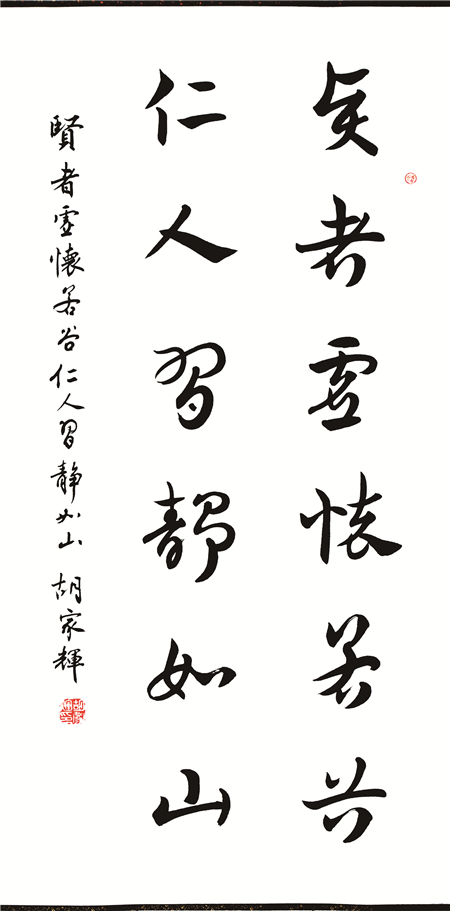 賢者虛懷若谷
仁人習靜如山
賢者虛懷若谷仁人習靜如山 胡家輝